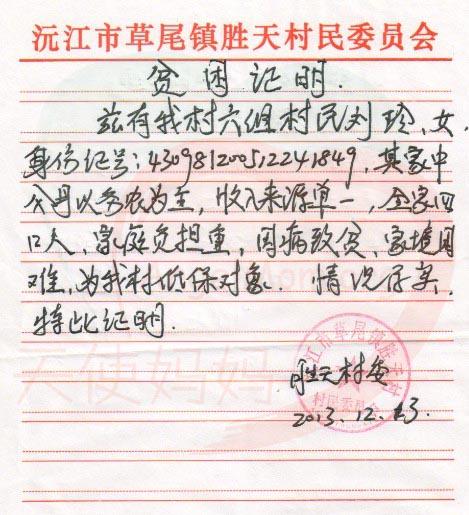 沅江市草尾镇胜天村民委员会
贫困证明.
兹有我村六组村民刘珍,女,
身份证号:430981200512241849,其家中
父母以务农为主,收入来源单一,全家四
口人,家庭负担重,因病致贫、家境困
难,为我村低保对象.情况属实,
特此证明.
胜天村委
2013.12.13.
天使妈妈